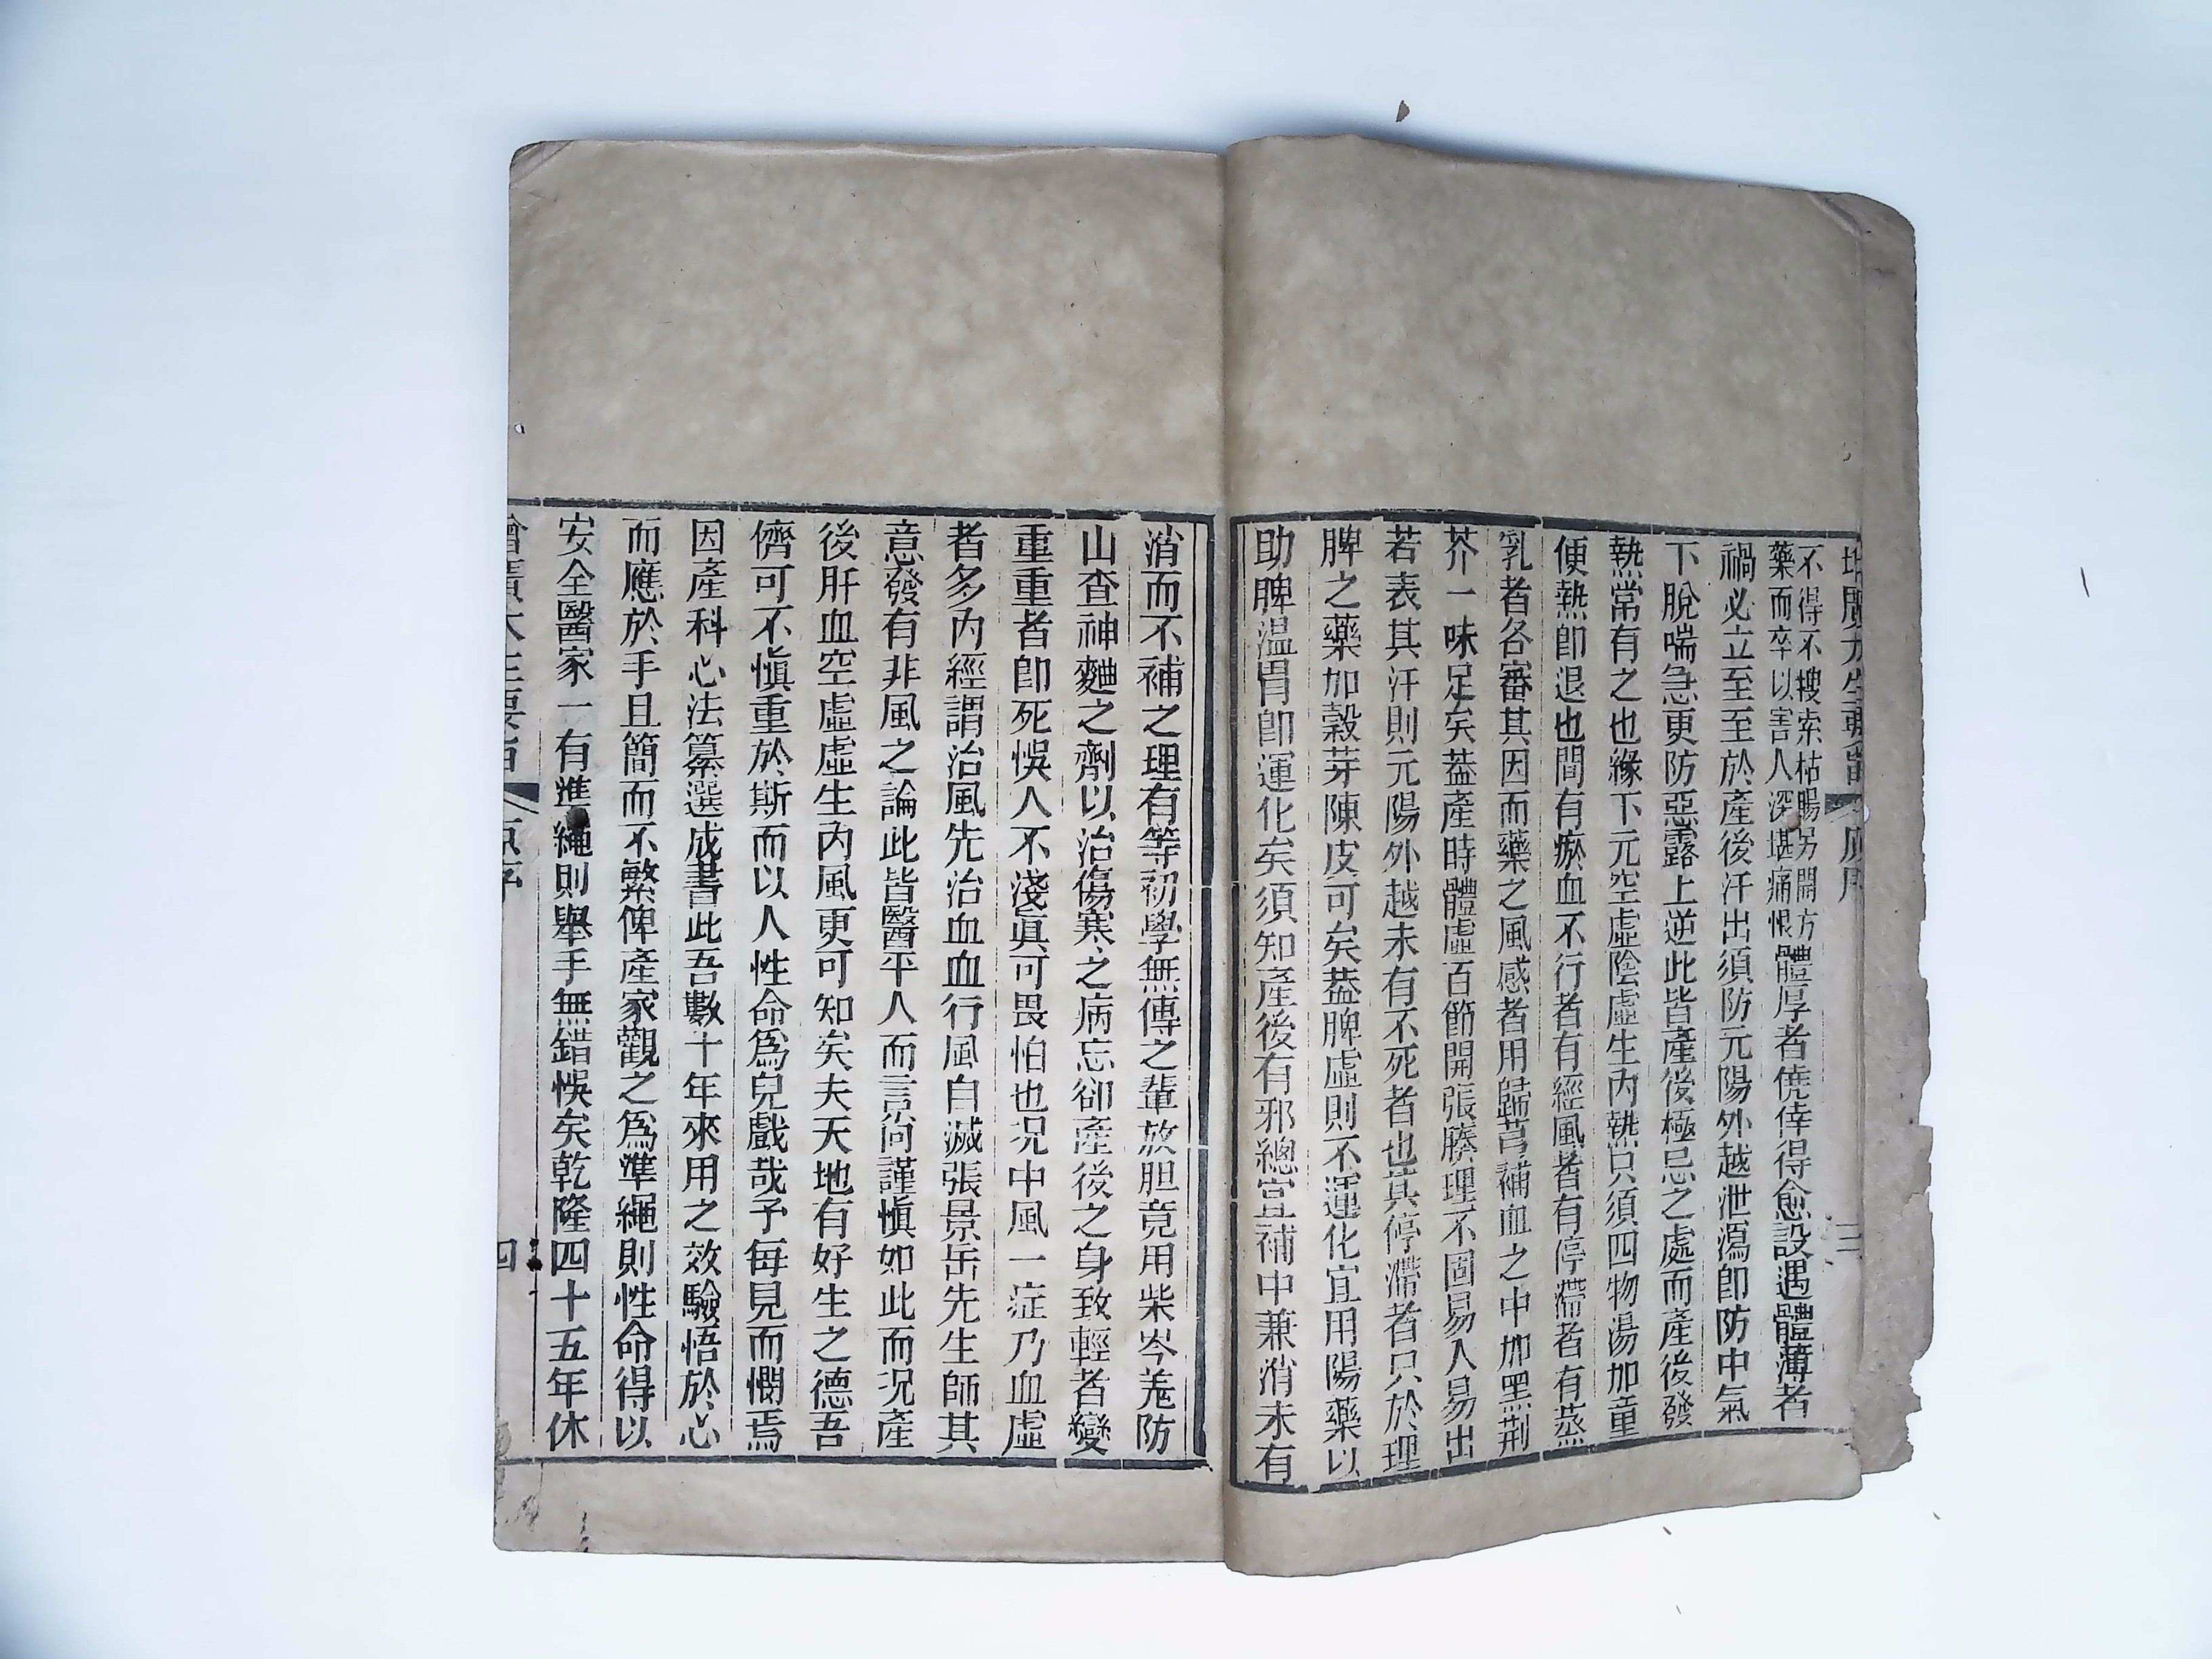 增廣大生要旨 原序 三
不得不搜索枯腸另開方
藥而卒以害人深堪痛恨體厚者僥倖得愈設遇體薄者
禍必立至至於產後汗出須防元陽外越泄瀉卽防中氣
下脫喘急更防惡露上逆此皆產後極忌之處而產後發
熱常有之也緣下元空虛陰虛生內熱只須四物湯加童
便熱卽退也間有瘀血不行者有經風者有停滯者有蒸
乳者各審其因而藥之風感者用歸芎補血之中加黑荊
芥一味足矣葢產時體虛百節開張腠理不固易入易出
若表其汗則元陽外越未有不死者也其停滯者只於理
脾之藥加穀芽陳皮可矣葢脾虛則不運化宜用陽藥以
助脾溫胃卽運化矣須知產後有邪總宜補中兼消未有
消而不補之理有等初學無傳之輩放胆竟用柴岑羗防
山查神麯之劑以治傷寒之病忘卻產後之身致輕者變
重重者卽死悞人不淺眞可畏怕也况中風一症乃血虛
者多內經謂治風先治血血行風自滅張景岳先生師其
意發有非風之論此皆醫平人而言尚謹愼如此而况產
後肝血空虛虛生內風更可知矣夫天地有好生之德吾
儕可不愼重於斯而以人性命爲兒戲哉予每見而憫焉
因產科心法纂選成書此吾數十年來用之效驗悟於心
而應於手且簡而不繁俾產家觀之爲準繩則性命得以
安全醫家一有準繩則舉手無錯悞矣乾隆四十五年休
增廣大生要旨 原序 四